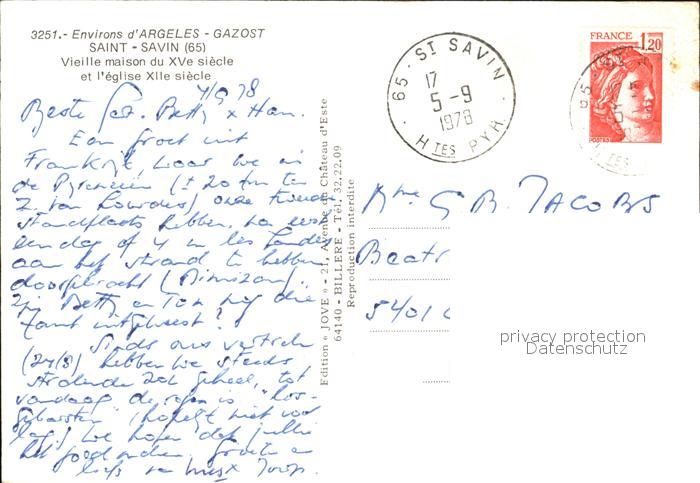 3251.- Environs d'ARGELES - GAZOST
SAINT - SAVIN (65)
Vieille maison du XVe siècle
et l'église XIIe siècle
4/9 78
Beste Betty x Han.
Een groet uit
Frankrijk, waar we in
de Pyreneeën (± 20 km ten
Z van Lourdes) onze tweede
standplaats hebben, na eerst
een dag of 4 in les Landes
aan het strand te hebben
doorgebracht (Mimizan)
Zijn Betty en Ton nog die
kant uitgeweest?
Sinds ons vertrek
(24/8) hebben we steeds
stralende zon gehad, tot
vandaag de regen is "los-
gebarsten" (hopelijk niet voor
lang) We hopen dat jullie
het goed maken. Groeten en
liefs van x Joop.
Edition « JOVE » - 21, Avenue du Château d'Este
64140 - BILLERE - Tél. 32.22.09
Reproduction interdite
65 - ST SAVIN
17
5-9
1978
HTES PYR.
FRANCE 1,20
POSTES
65
HTES
Mme G B. JACOBS
Beatr
5401
privacy protection
Datenschutz